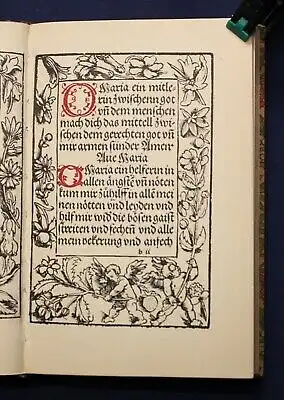 O Maria ein mitle-
rin zwischenn got
vñ dem menschen
mach dich das mittell zwi-
schen dem gerechten got vñ
mir armen sunder Amen
Aue Maria
O Maria ein helferin in
allen ängstē vñ nöten
kum mir zuhilff in alle mei
nen nötten und leyden und
hilf mir wid die bösen gaist
streiten und fechten und alle
mein bekerung und anfech
b ii